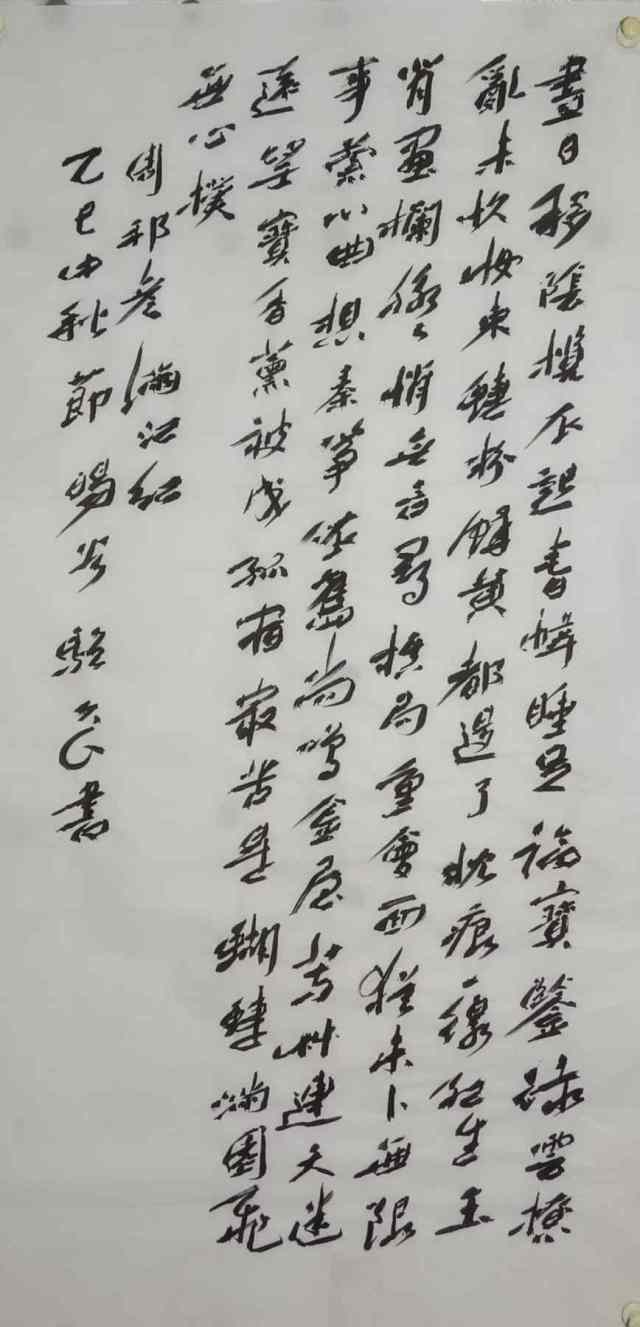 晝日移陰攬衣起春幃睡足臨寶鑒綠雲撩
亂未忺妝束蝶粉蜂黄都退了枕痕一線紅生玉
背畫欄脉々悄無言尋棋局重會面猶未卜無限
事縈心曲想秦筝依舊尚鳴金屋芳艸連天迷
遠望寶香薰被成孤宿最苦是蝴蝶滿園飛
無心撲
周邦彦滿江紅
乙巳中秋節暘谷書